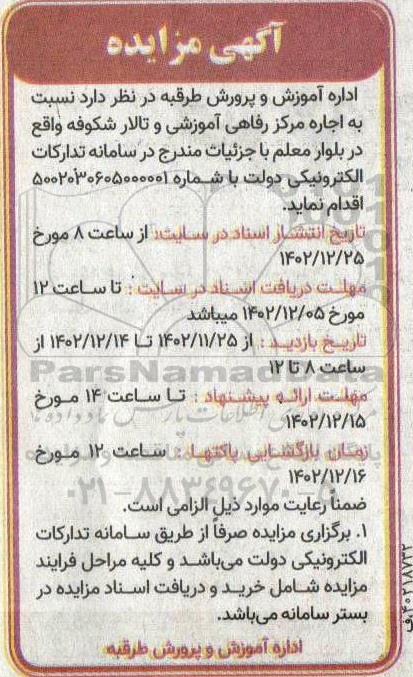 آگهی مزایده
اداره آموزش و پرورش طرقبه در نظر دارد نسبت
به اجاره مرکز رفاهی آموزشی و تالار شکوفه واقع
در بلوار معلم با جزئیات مندرج در سامانه تدارکات
الکترونیکی دولت با شماره ۵۰۰۲۰۳۰۶۰۵۰۰۰۰۰۱
اقدام نماید.
تاریخ انتشار اسناد در سایت: از ساعت ۸ مورخ
۱۴۰۲/۱۲/۲۵
مهلت دریافت اسناد در سایت : تا ساعت ۱۲
مورخ ۱۴۰۲/۱۲/۰۵ میباشد
تاریخ بازدید : از ۱۴۰۲/۱۱/۲۵ تا ۱۴۰۲/۱۲/۱۴ از
ساعت ۸ تا ۱۲
مهلت ارائه پیشنهاد : تا ساعت ۱۴ مورخ
۱۴۰۲/۱۲/۱۵
زمان بازگشایی پاکتها : ساعت ۱۲ مورخ
۱۴۰۲/۱۲/۱۶
ضمنا رعایت موارد ذیل الزامی است.
۱. برگزاری مزایده صرفاً از طریق سامانه تدارکات
الکترونیکی دولت می‌باشد و کلیه مراحل فرایند
مزایده شامل خرید و دریافت اسناد مزایده در
بستر سامانه می‌باشد.
اداره آموزش و پرورش طرقبه
ParsNamadData
۰۲۱-۸۸۳۴۹۶۷۰-۵